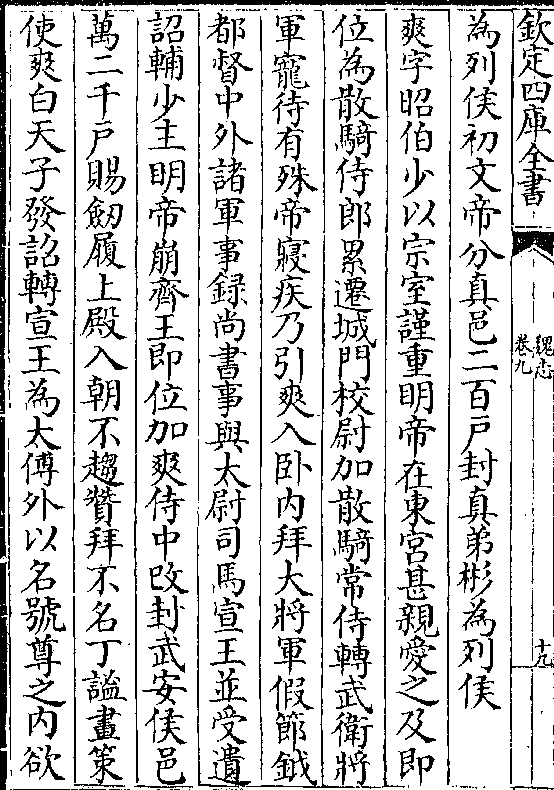 欽定四庫全書
魏志
卷九
十九
為列侯初文帝分真邑二百戶封真弟彬為列侯
爽字昭伯少以宗室謹重明帝在東宮甚親愛之及即
位為散騎侍郎累遷城門校尉加散騎常侍轉武衛將
軍寵待有殊帝寢疾乃引爽入卧内拜大將軍假節鉞
都督中外諸軍事録尚書事與太尉司馬宣王並受遺
詔輔少主明帝崩齊王即位加爽侍中改封武安侯邑
萬二千戶賜劒履上殿入朝不趨贊拜不名丁謐畫策
使爽白天子發詔轉宣王為太傅外以名號尊之内欲